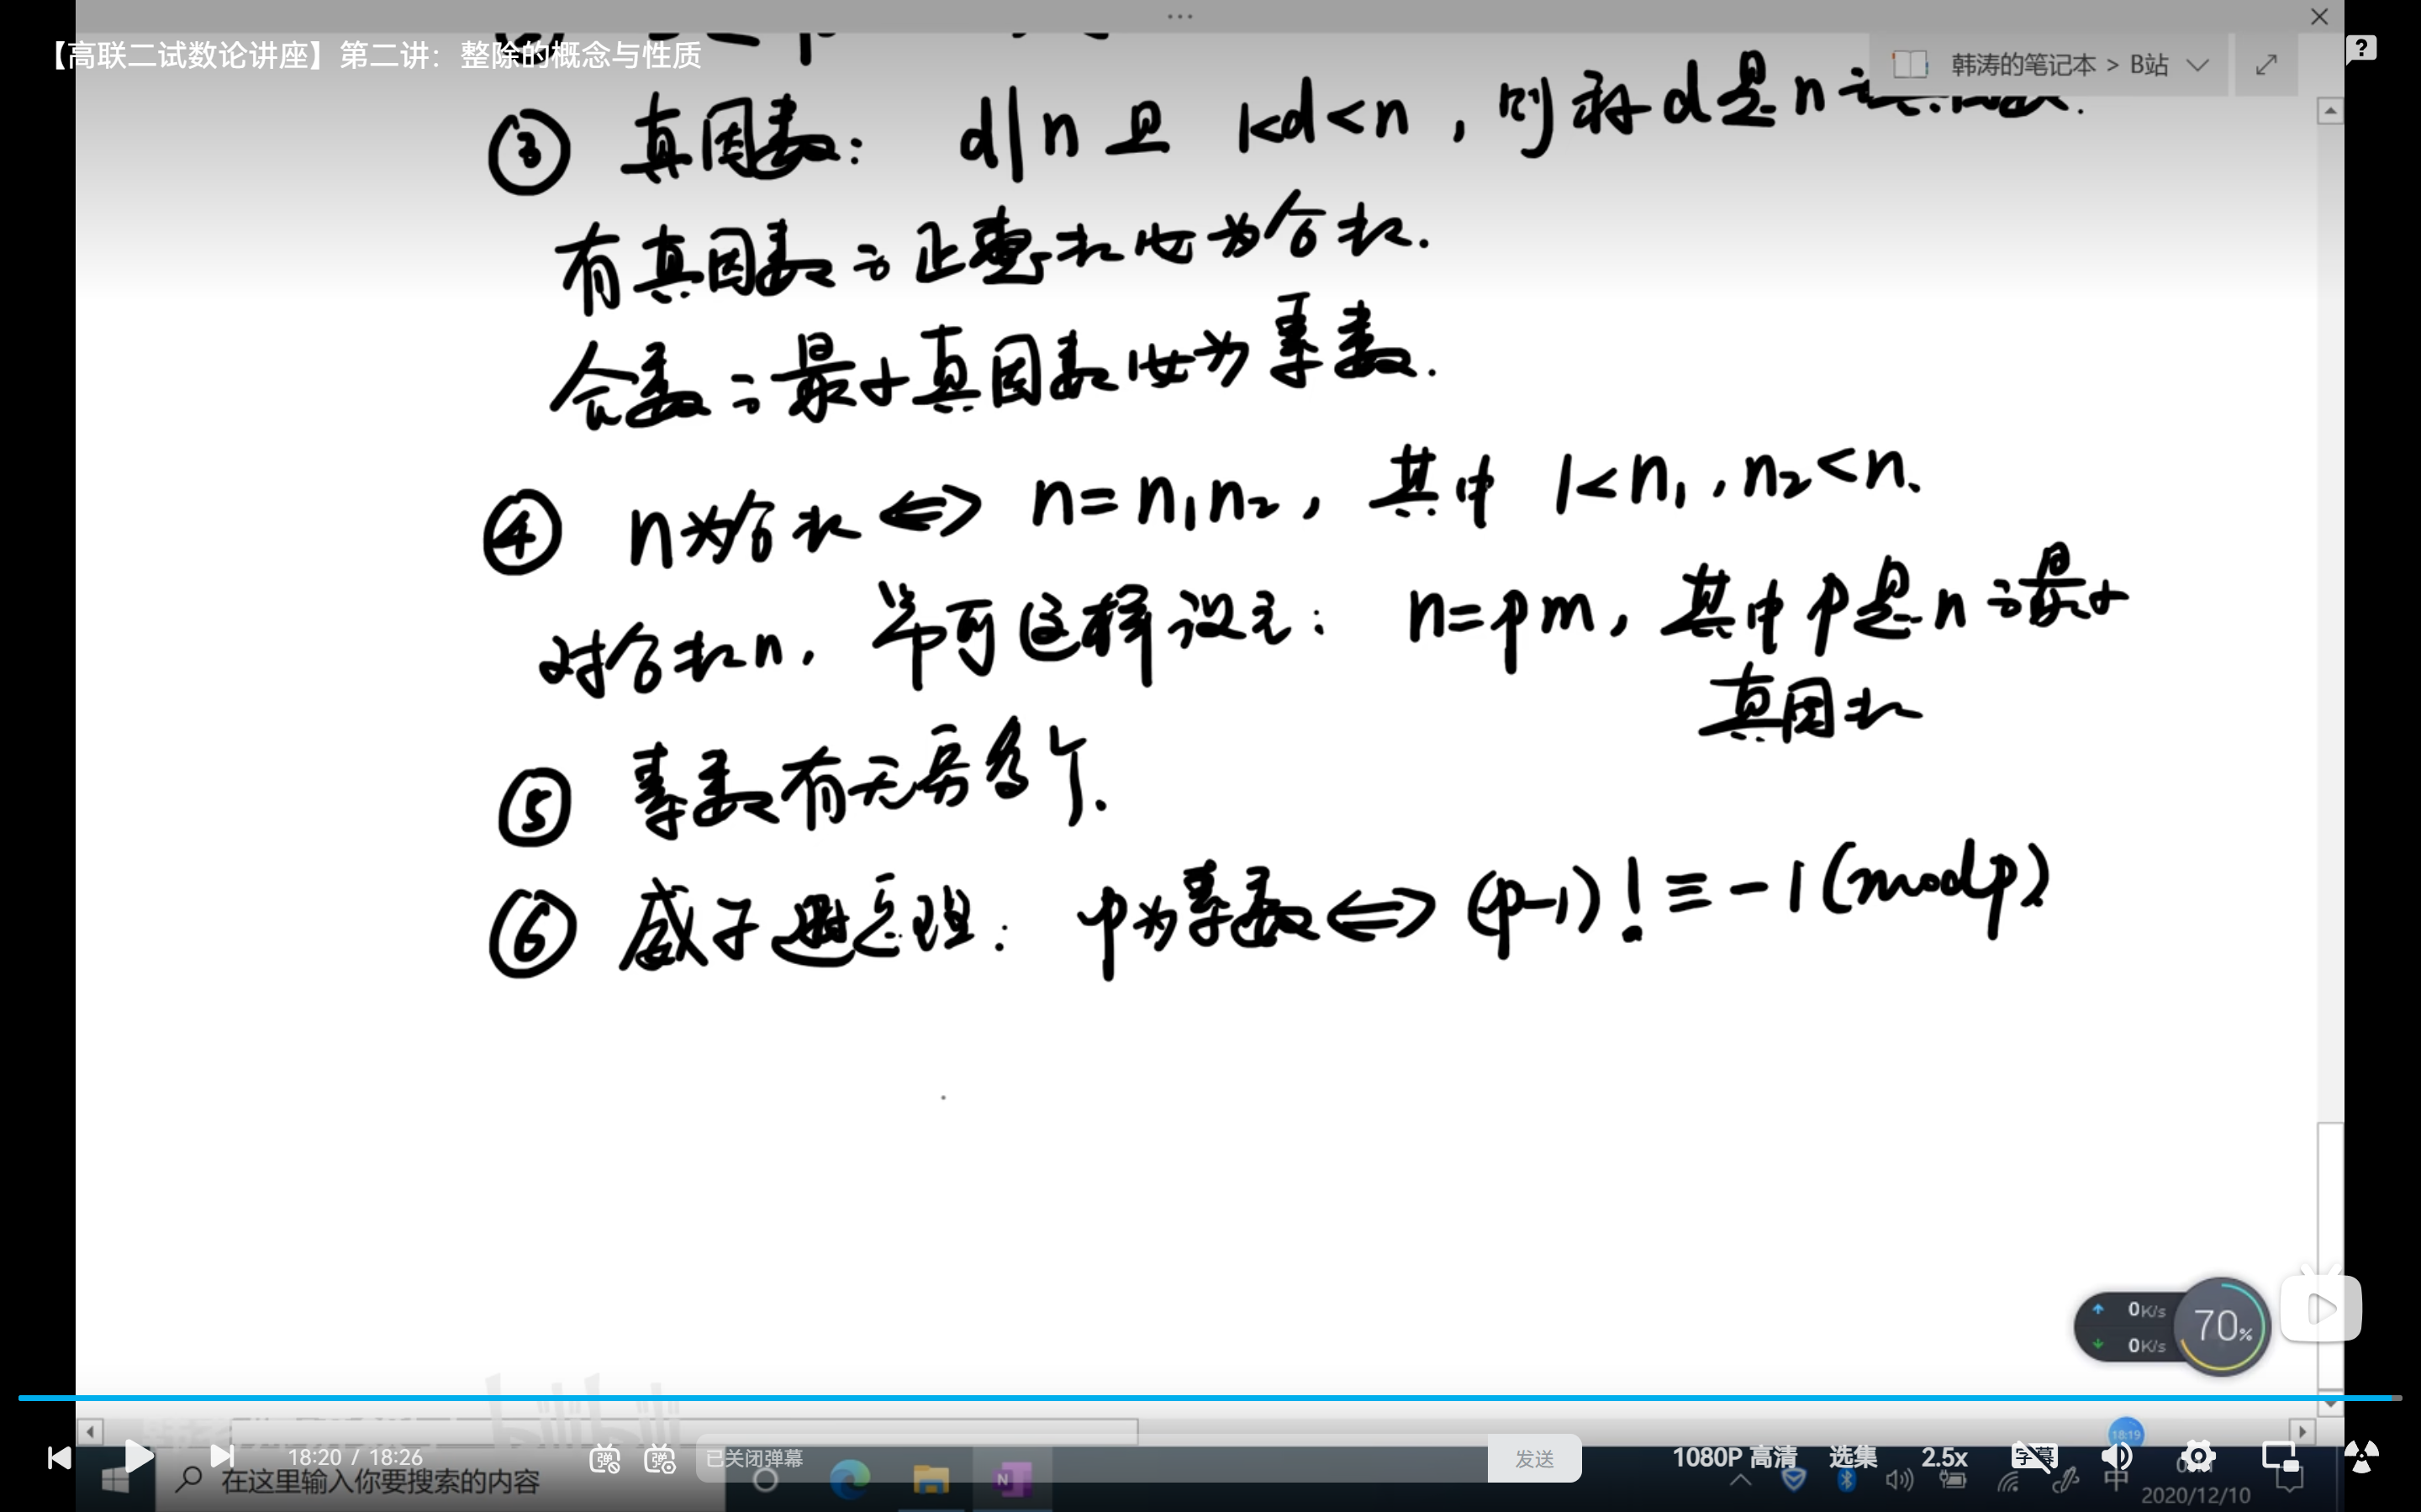 【高联二试数论讲座】第二讲：整除的概念与性质
韩涛的笔记本 > B站
③ 真因数： d|n 且 1<d<n，则称d是n之真因数.
有真因数之正整数必为合数.
合数之最小真因数必为素数.
④ n为合数 ⟺ n=n₁n₂，其中 1<n₁,n₂<n.
对合数n，常可这样设元： n=pm，其中p是n之最小
真因数
⑤ 素数有无穷多个.
⑥ 威尔逊定理： p为素数 ⟺ (p-1)!≡-1(modp)
0K/s
0K/s
70%
bilibili
18:19
18:20 / 18:26
弹
弹
已关闭弹幕
发送
1080P 高清
选集
2.5x
字幕
在这里输入你要搜索的内容
N
中
2020/12/10